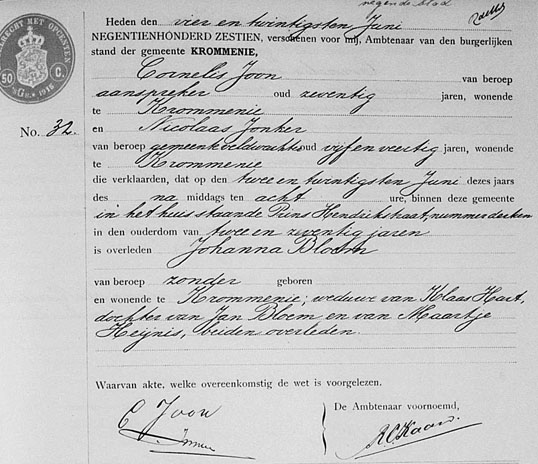 negende blad
Heden den vier en twintigsten Juni
NEGENTIENHONDERD ZESTIEN, verschenen voor mij, Ambtenaar van den burgerlijken
stand der gemeente KROMMENIE,
50 C.
1916
Cornelis Joon van beroep
aanspreker oud zeventig jaren, wonende
te Krommenie
No. 32.
en Nicolaas Jonker
van beroep gemeenteveldwachter oud vijf en veertig jaren, wonende
te Krommenie
die verklaarden, dat op den twee en twintigsten Juni dezes jaars
des na middags ten acht ure, binnen deze gemeente
in het huis staande Prins Hendrikstraat, nummer dertien
in den ouderdom van twee en zeventig jaren
is overleden Johanna Bloem
van beroep zonder geboren
en wonende te Krommenie; weduwe van Klaas Hart,
dochter van Jan Bloem en van Maartje
Heijnis, beiden overleden.
Waarvan akte, welke overeenkomstig de wet is voorgelezen.
C Joon
De Ambtenaar voornoemd,